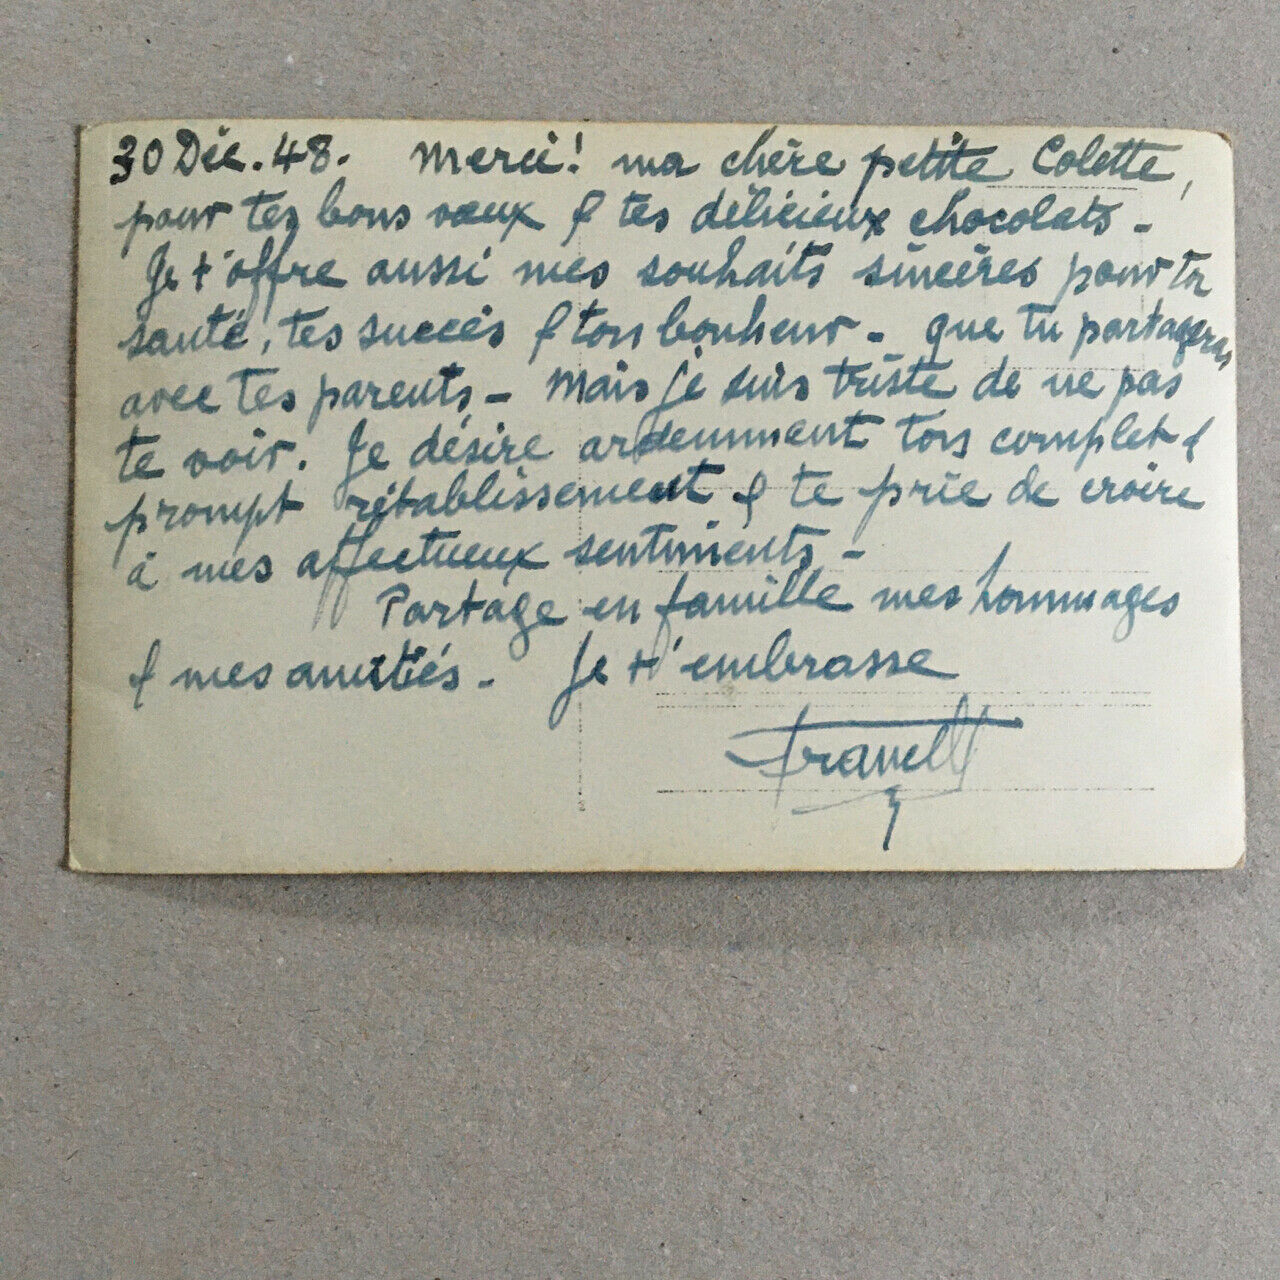 30 Déc. 48. Merci! ma chère petite Colette,
pour tes bons vœux & tes délicieux chocolats -
Je t'offre aussi mes souhaits sincères pour ta
santé, tes succès & ton bonheur - que tu partageras
avec tes parents - Mais je suis triste de ne pas
te voir. Je désire ardemment ton complet &
prompt rétablissement & te prie de croire
à mes affectueux sentiments -
Partage en famille mes hommages
& mes amitiés - Je t'embrasse